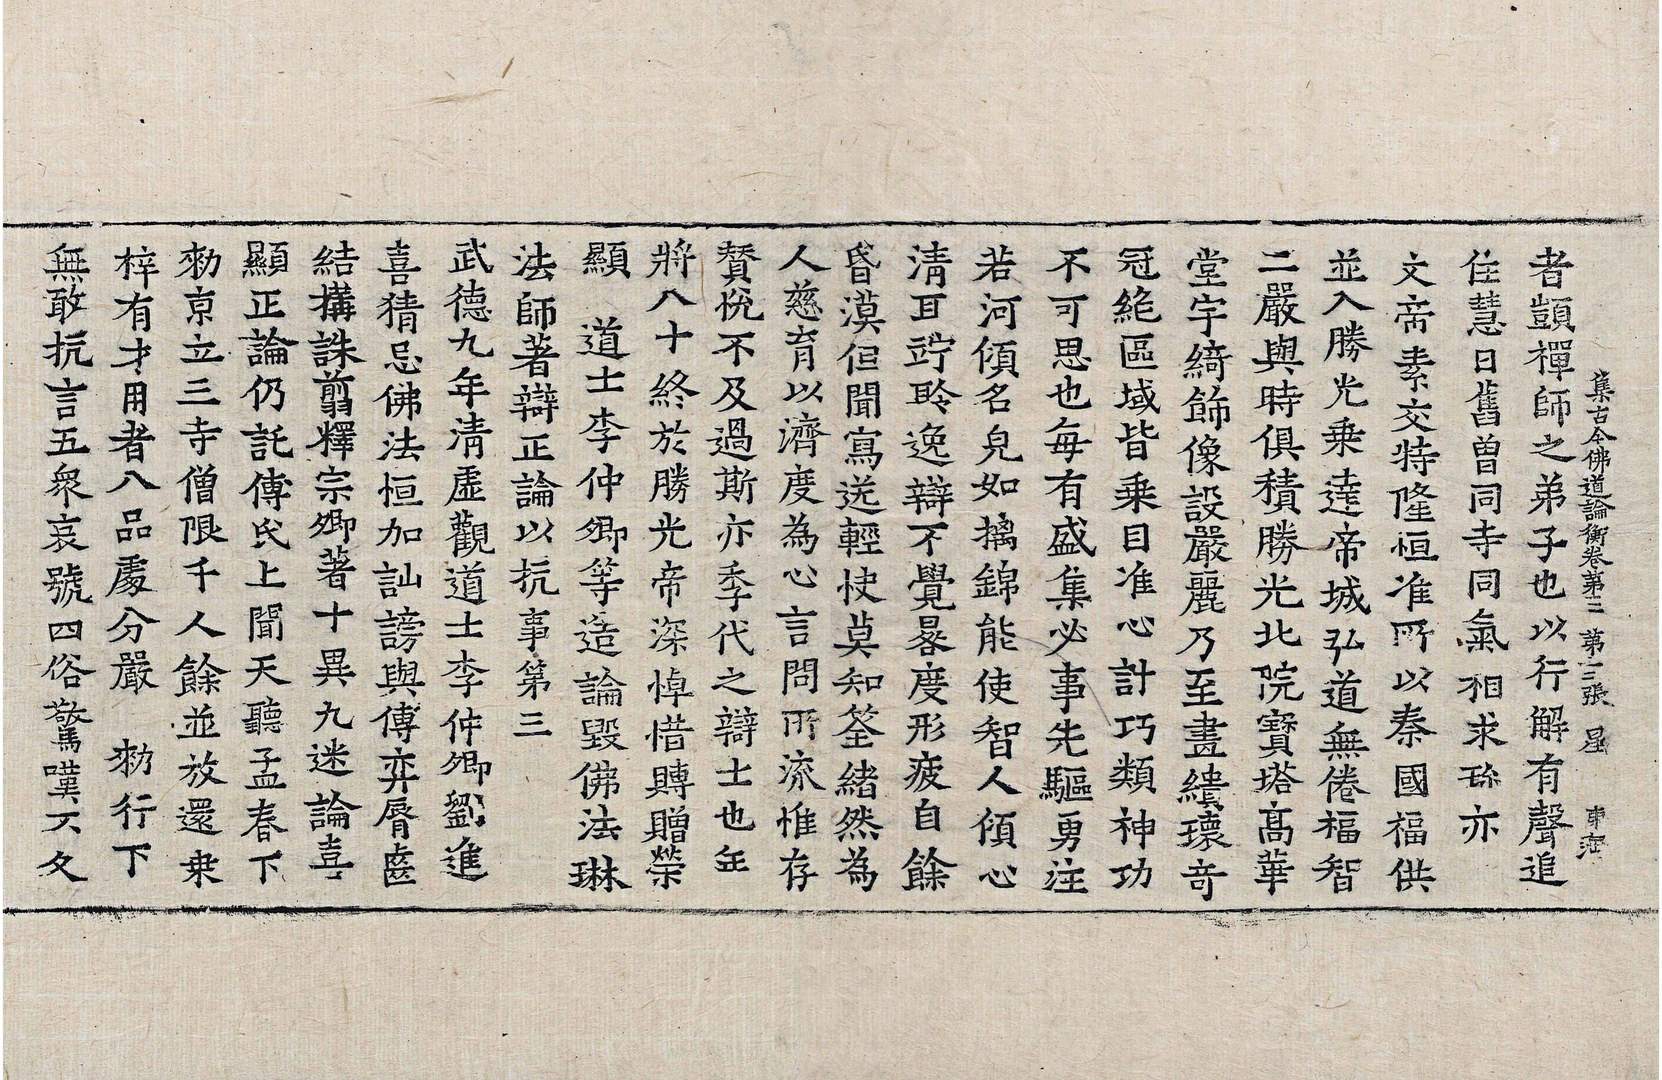 集古今佛道論衡卷第三 第十三張 星
者顗禪師之弟子也以行解有聲追
住慧日舊曽同寺同氣相求珎亦
文帝素交特隆恒准所以秦國福供
並入勝光乗達帝城弘道無倦福智
二嚴與時俱積勝光北院寳塔髙華
堂宇綺飾像設嚴麗乃至畫繢瓌竒
冠絶區域皆乗目准心計巧類神功
不可思也每有盛集必事先驅勇注
若河傾名皃如摛錦能使智人傾心
清耳竚聆逸辯不覺晷度形疲自餘
昏漠但聞寫送輕快莫知筌緒然為
人慈育以濟度為心言問所流惟存
賛悅不及過斯亦季代之辯士也年
將八十終於勝光帝深悼惜賻贈榮
顯 道士李仲卿等造論毀佛法琳
法師著辯正論以抗事第三
武德九年清虛觀道士李仲卿劉進
喜猜忌佛法恒加訕謗與傅弈脣齒
結搆誅翦釋宗卿著十異九迷論喜
顯正論仍託傅氏上聞天聽孟春下
勑京立三寺僧限千人餘並放還桒
梓有才用者八品處分嚴 勑行下
無敢抗言五衆哀號四俗驚嘆不久